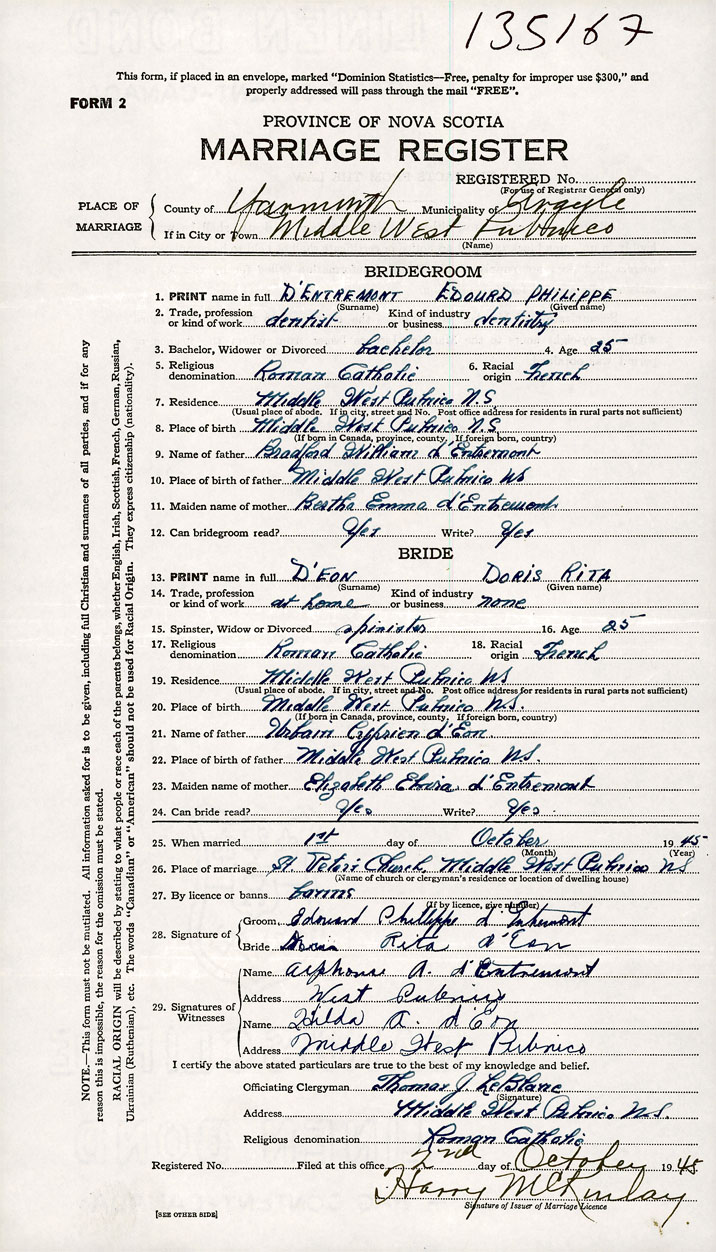 135167
This form, if placed in an envelope, marked "Dominion Statistics—Free, penalty for improper use $300," and
properly addressed will pass through the mail "FREE".
FORM 2
PROVINCE OF NOVA SCOTIA
MARRIAGE REGISTER
REGISTERED No.
(For use of Registrar General only)
PLACE OF MARRIAGE
County of Yarmouth Municipality of Argyle
If in City or Town Middle West Pubnico
(Name)
BRIDEGROOM
1. PRINT name in full D'ENTREMONT EDOURD PHILIPPE
(Surname) (Given name)
2. Trade, profession or kind of work dentist Kind of industry or business dentistry
3. Bachelor, Widower or Divorced bachelor 4. Age 25
5. Religious denomination Roman Catholic 6. Racial origin French
7. Residence Middle West Pubnico N.S.
(Usual place of abode. If in city, street and No. Post office address for residents in rural parts not sufficient)
8. Place of birth Middle West Pubnico N.S.
(If born in Canada, province, county, If foreign born, country)
9. Name of father Bradford William d'Entremont
10. Place of birth of father Middle West Pubnico NS
11. Maiden name of mother Bertha Emma d'Entremont
12. Can bridegroom read? Yes Write? Yes
BRIDE
13. PRINT name in full D'EON DORIS RITA
(Surname) (Given name)
14. Trade, profession or kind of work at home Kind of industry or business none
15. Spinster, Widow or Divorced spinister 16. Age 25
17. Religious denomination Roman Catholic 18. Racial origin French
19. Residence Middle West Pubnico NS
(Usual place of abode. If in city, street and No. Post office address for residents in rural parts not sufficient)
20. Place of birth Middle West Pubnico N.S.
(If born in Canada, province, county, If foreign born, country)
21. Name of father Urbain Cyprien d'Eon
22. Place of birth of father Middle West Pubnico N.S.
23. Maiden name of mother Elizabeth Elvira d'Entremont
24. Can bride read? Yes Write? Yes
25. When married 1st day of October 1945
(Month) (Year)
26. Place of marriage St Peters Church, Middle West Pubnico NS
(Name of church or clergyman's residence or location of dwelling house)
27. By licence or banns banns
(If by licence, give number)
28. Signature of
Groom Edouard Philippe d'Entremont
Bride Doris Rita d'Eon
29. Signatures of Witnesses
Name Alphonse A. d'Entremont
Address West Pubnico
Name Hilda A. d'Eon
Address Middle West Pubnico
I certify the above stated particulars are true to the best of my knowledge and belief.
Officiating Clergyman Thomas J. LeBlanc
(Signature)
Address Middle West Pubnico N.S.
Religious denomination Roman Catholic
Registered No. Filed at this office 2nd day of October 1945
Harry McKinlay
Signature of Issuer of Marriage Licence
[SEE OTHER SIDE]
NOTE.—This form must not be mutilated. All information asked for is to be given, including full Christian and surnames of all parties, and if for any
reason this is impossible, the reason for the omission must be stated.
RACIAL ORIGIN will be described by stating to what people or race each of the parents belongs, whether English, Irish, Scottish, French, German, Russian,
Ukrainian (Ruthenian), etc. The words "Canadian" or "American" should not be used for Racial Origin. They express citizenship (nationality).